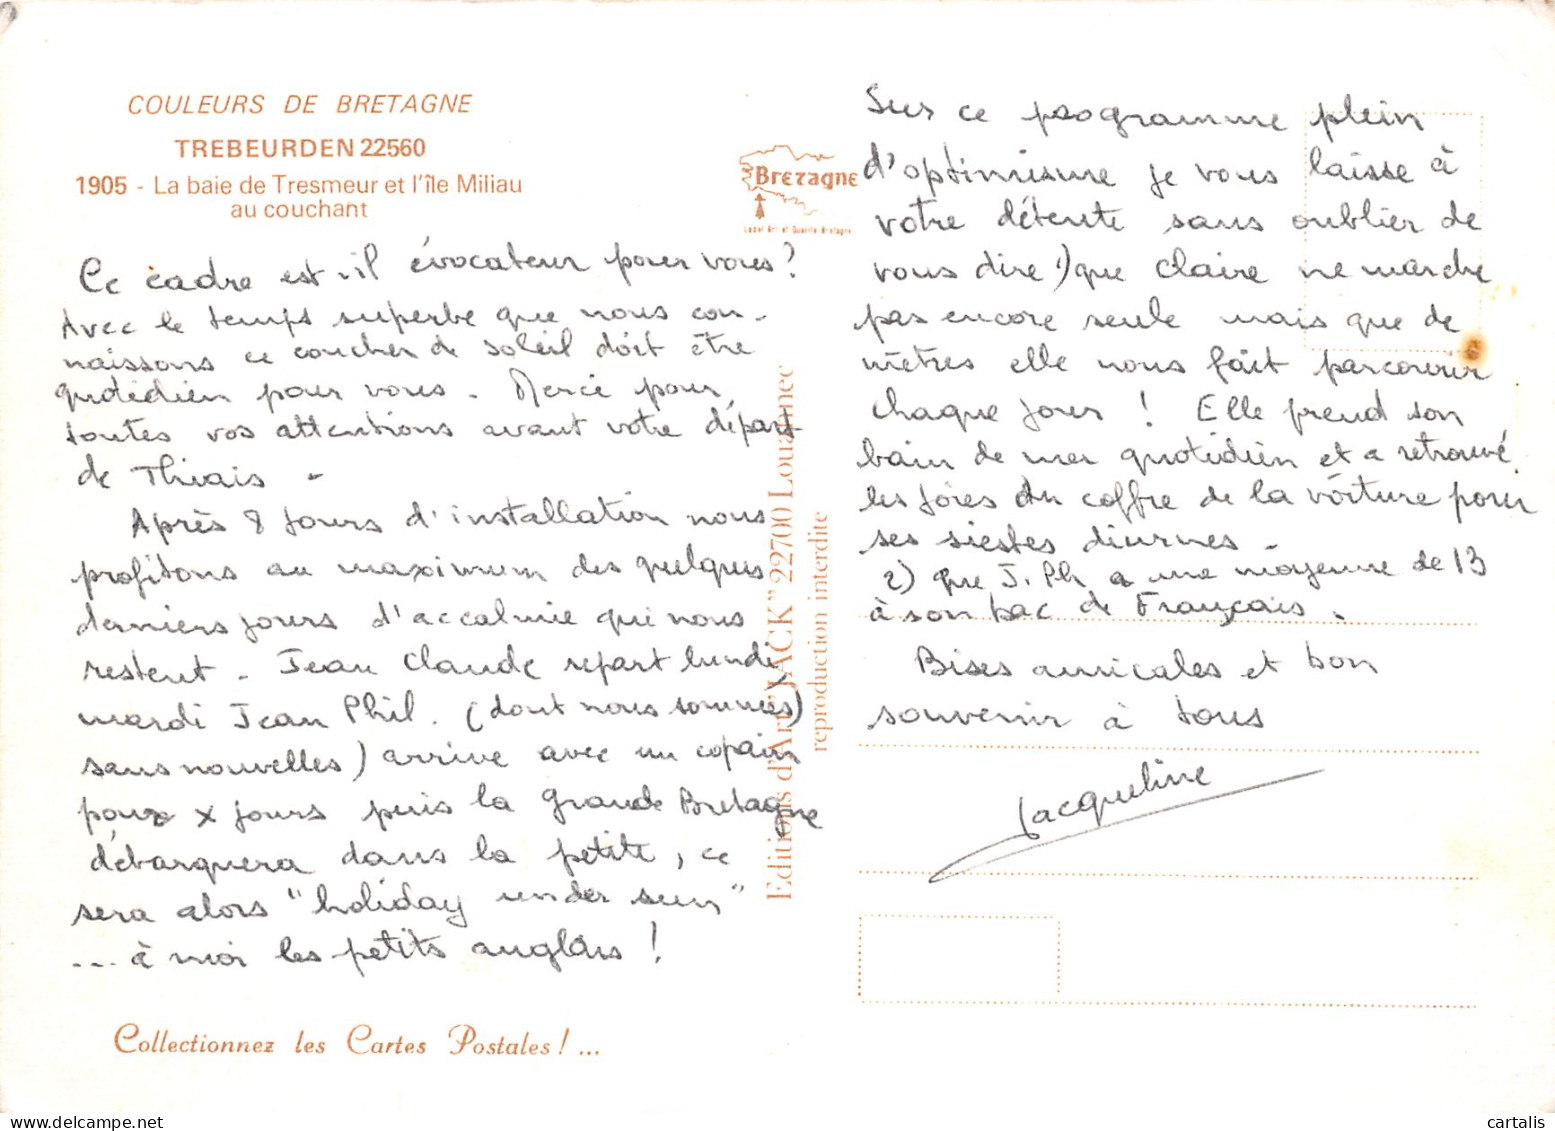 COULEURS DE BRETAGNE
TREBEURDEN 22560
1905 - La baie de Tresmeur et l'île Miliau
au couchant
Ce cadre est-il évocateur pour vous ?
Avec le temps superbe que nous con-
naissons ce coucher de soleil doit être
quotidien pour vous. Merci pour
toutes vos attentions avant votre départ
de Thiais -
Après 8 jours d'installation nous
profitons au maximum des quelques
derniers jours d'accalmie qui nous
restent. Jean Claude repart lundi,
mardi Jean Phil. (dont nous sommes
sans nouvelles) arrive avec un copain
pour x jours puis la grande Bretagne
débarquera dans la petite, ce
sera alors "holiday under sun"
... à moi les petits anglais !
Collectionnez les Cartes Postales ! ...
Bretagne
Label Art et Qualité Bretagne
Editions d'Art "JACK" 22700 Louannec
reproduction interdite
Sur ce programme plein
d'optimisme je vous laisse à
votre détente sans oublier de
vous dire 1) que Claire ne marche
pas encore seule mais que de
mètres elle nous fait parcourir
chaque jour ! Elle prend son
bain de mer quotidien et a retrouvé
les joies du coffre de la voiture pour
ses siestes diurnes.
2) que J. Ph a une moyenne de 13
à son bac de Français.
Bises amicales et bon
souvenir à tous
Jacqueline
cartalis